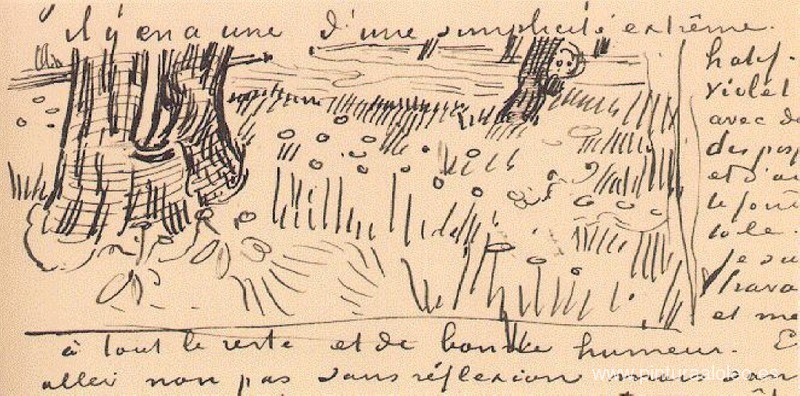 il y en a une d'une simplicité extrême.
haly-
violet
avec de
des pos
et d'au
le fond
tole.
je su
trava
et me
à tout le reste et de bonne humeur. E
aller non pas sans réflexion mais san
www.pinturaaloleo.es